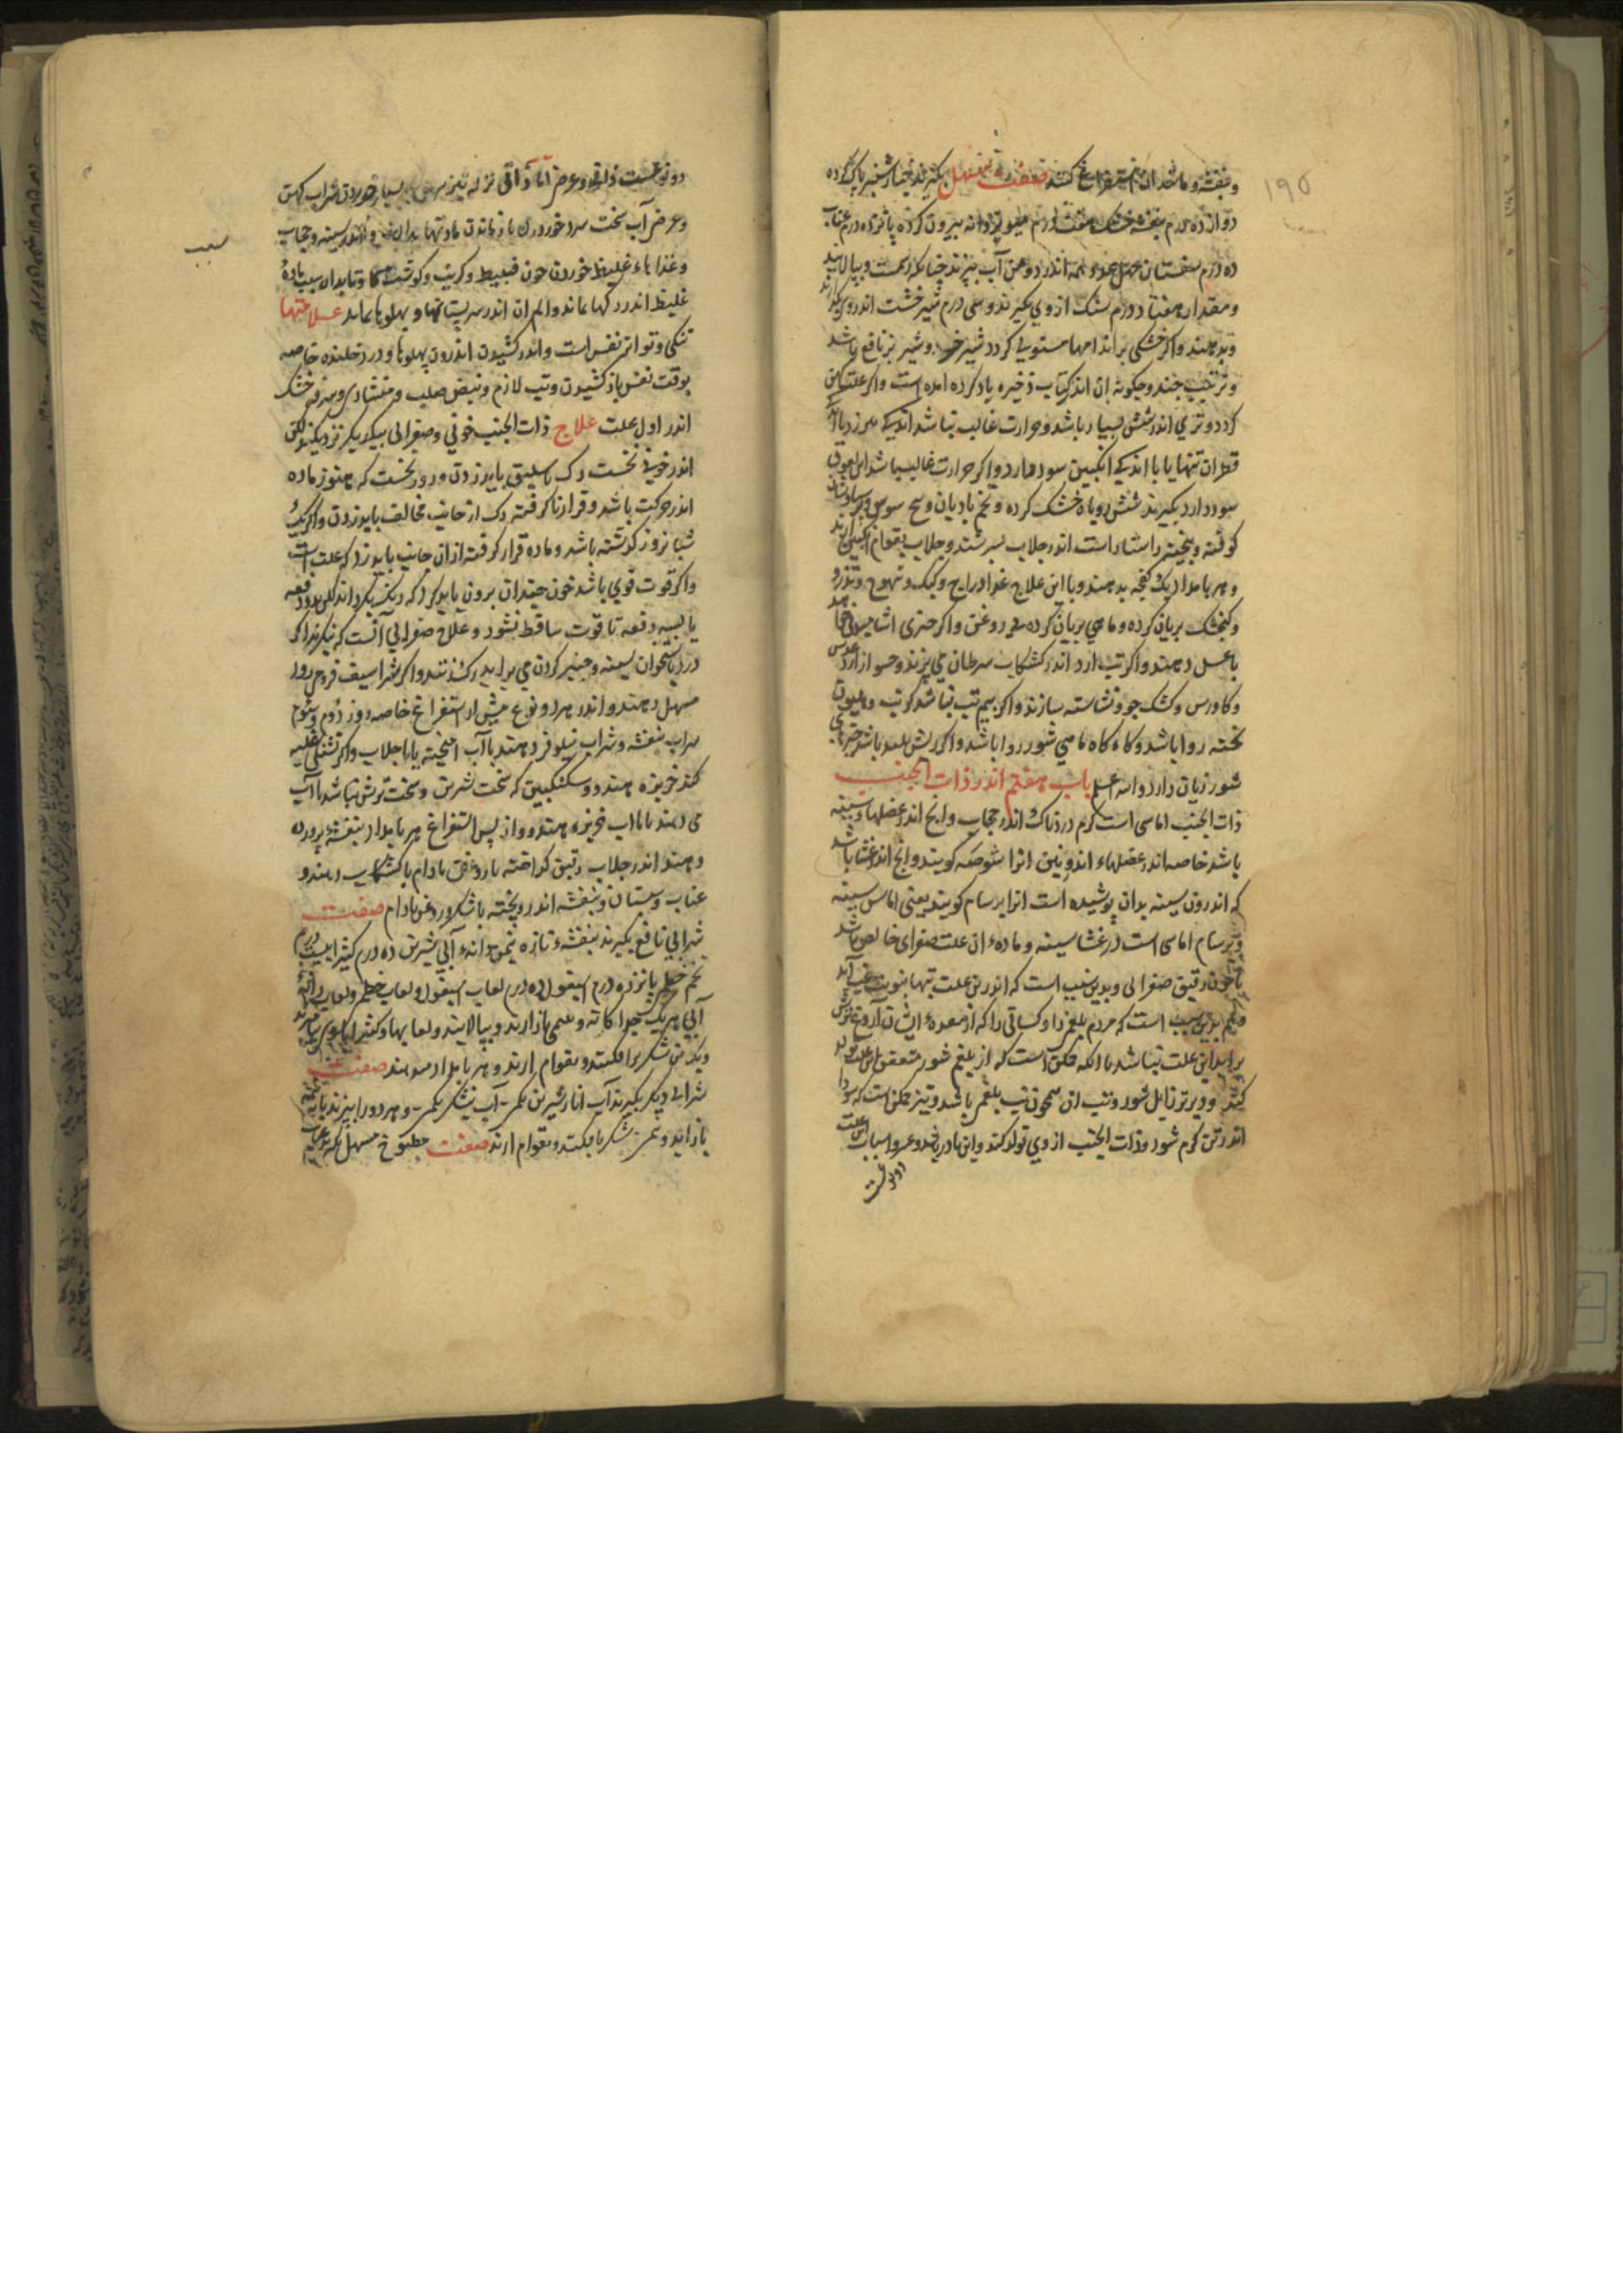 ۱۹۵
وبنفشه وماننداین استفراغ کنند صفت مسهل بکیرند خیارشنبر پاک کرده
دوازده درم بنفشه خشک هفت درم میویز دانه بیرون کرده پانزده درم عناب
ده درم سفستان عدد همه اندر دو من آب بپزند چنانکه رسمست وبپالایند
ومقدار هفتاد درم سنک ازوی بکیرند وسی درم شیرخشت اندروی
وبدهند واکر خشکی بر اندامها مستولی کردد شیر خر وشیر بز نافع باشد
وترتیب جند وجکونه آن اندر کتاب ذخیره یاد کرده امده است واکر علت کهن
کردد وتری اندر شش بسیار باشد وحرارت غالب نباشد اندکی
قطران تنها یا با اندکی انکبین سود دارد واکر حرارت غالب باشد این لعوق
سود دارد بکیرند شش روباه خشک کرده وتخم بادیان وبیخ سوس وپرسیاوشان
کوفته وبیخته راستاراست اندر جلاب بسرشند وجلاب بقوام انکبین
وهر بامداد یک کفجه بدهند وبا این علاج غذا دراج وکبک وتیهوج وتذرو
وکنجشک بریان کرده وماهی بریان کرده بی روغن واکر چیزی اشامیدنی
با عسل دهند واکر تب ارد اندر کشکاب سرطان می پزند وحسو از ارد عدس
وکاورس وکشک جو ونشاسته سازند واکر بیم تب نباشد کرنب وهلیون
پخته روا باشد وکاه کاه ماهی شور روا باشد واکر ریش بلید باشد چیزهای
شور زیان دارد والله اعلم باب هفتم اندر ذات الجنب
ذات الجنب اماسی است کرم دردناک اندر حجاب وانج اندر عضلهاء سینه
باشد خاصه اندر عضلهاء اندرونین انرا شوصه کویند وانج اندر غشا باشد
که اندرون سینه بدان پوشیده است انرا برسام کویند یعنی اماس سینه
وبرسام اماسی است در غشا سینه وماده ان علت صفرای خالص باشد
یا خون رقیق صفرائی وبدین سبب است که اندرین علت تبها بنوبت غب آید
وهم بدین سبب است که مردم بلغمی را وکسانی را که از معده ایشان آروغ ترش
برآید این علت نباشد با آنکه ممکن است که از بلغم شور متعفن این علت تولد
کند ودیرتر زایل شود وتب ان همچون تب بلغمی باشد ونیز ممکن است که سودا
اندر تن کرم شود وذات الجنب از وی تولد کند واین نادر باشد واسباب این علت
دو نوعست
دو نوعست ذاتی وعرضی اما ذاتی نزله تیز بسیار خوردن شراب کهن
وعرضی آب سخت سرد خوردن واندر سینه وحجاب
سبب
وغذاهاء غلیظ خوردن چون قنبیط وکرنب وکوشت کاو وتا بدان سبب ماده
غلیظ اندر رکها بماند والم ان اندر سر پستانها وپهلوها بماند علامتها
تنکی وتواتر نفس است واندر کشیدن اندرون پهلوها ودرد خلنده خاصه
بوقت نفس باز کشیدن وتب لازم ونبض صلب ومنشاری وسرفه خشک
اندر اول علت علاج ذات الجنب خونی وصفرائی بیکدیکر نزدیکند لکن
اندر خونی نخست رک باسلیق باید زدن ودر روز نخست که هنوز ماده
اندر حرکت باشد وقرار نا کرفته رک از جانب مخالف باید زدن واکر یک
شبانروز کذشته باشد وماده قرار کرفته ازان جانب باید زد که علت است
واکر قوت قوی باشد خون چندان برون باید کرد که رنک بکرداند لکن بدو دفعه
یا بسه دفعه تا قوت ساقط نشود وعلاج صفرائی آنست که بنکرند اکر
درد باستخوان سینه وچنبر کردن می براید رک زنند واکر بشراسیف فرو می رود
مسهل دهند واندر هر دو نوع پیش از استفراغ خاصه روز دوم وسوم
شراب بنفشه وشراب نیلوفر دهند با آب امیخته یا با جلاب واکر تشنکی غلبه
کند خربزه هندو وسکنکبین که سخت شیرین وسخت ترش نباشد با آب
می دهند یا با آب خربزه هندو واز پس استفراغ هر بامداد بنفشه پرورده
دهند اندر جلاب رقیق کداخته با روغن بادام یا کشکاب دهند و
عناب وسبستان وبنفشه اندرو پخته با شکر وروغن بادام صفت
شرابی نافع بکیرند بنفشه تازه نیم من دانه آبی شیرین ده درم کثیرا بیست درم
تخم خطمی پانزده درم اسپغول ده درم لعاب اسپغول ولعاب خطمی ولعاب دانه
آبی هر یک جداکانه وبپالایند ولعابها وکثیرا
ویک من شکر برافکنند وبقوام ارند وهر بامداد میدهند صفت
شرابی دیکر بکیرند آب انار شیرین یکمن آب نیشکر یکمن وهر دو را بپزند تا به نیمه
باز آید ونیم من شکر بافکنند وبقوام ارند صفت مطبوخ مسهل بکیرند عناب